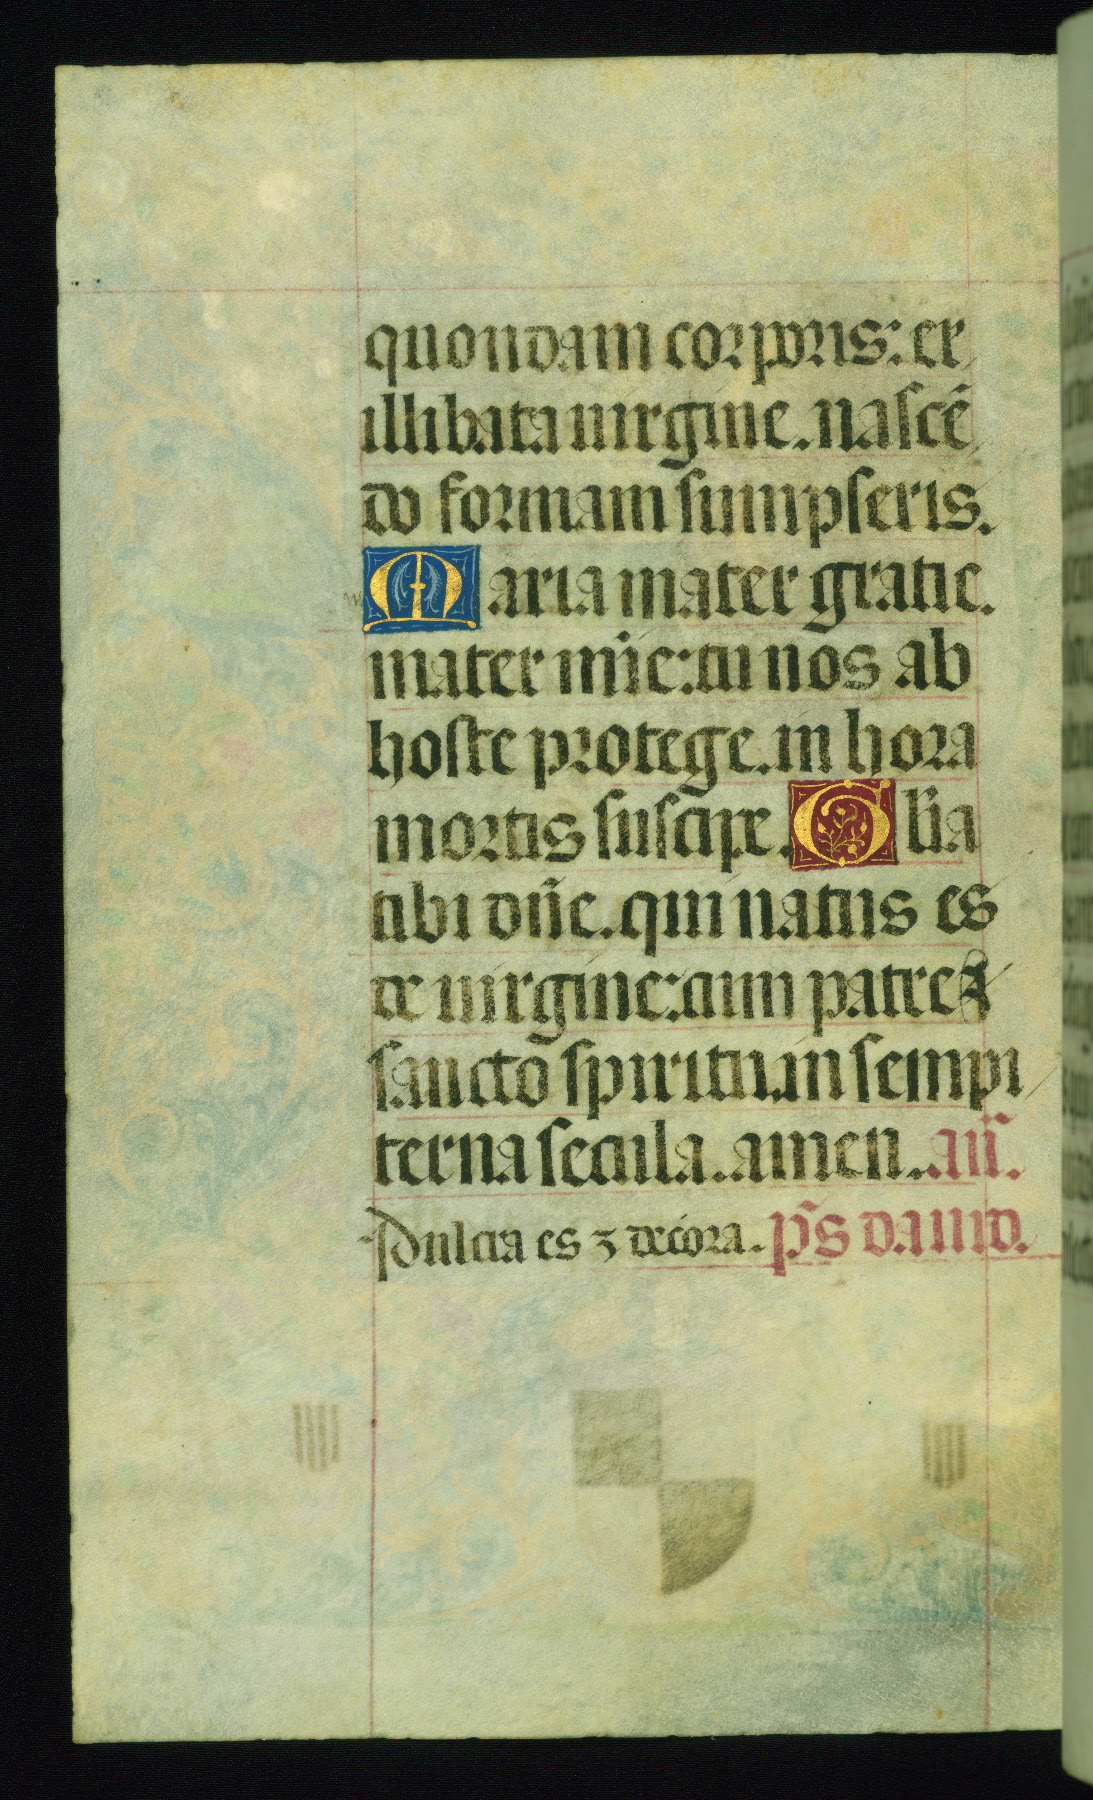 quondam corporis: ex
illibata uirgine. nascē
do formam sumpseris.
Maria mater gratie.
mater mīe: tu nos ab
hoste protege. in hora
mortis suscipe. Glīa
tibi dñe. qui natus es
de uirgine: cum patre &
sancto spiritu. in sempi
terna secula. amen. añ.
Pulcra es ⁊ decora. p̄s dauid.